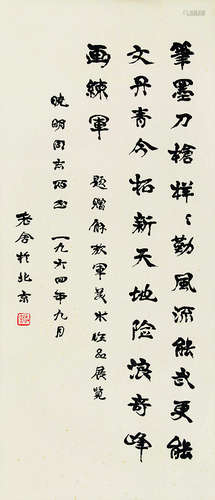 筆墨刀槍樣々勤風流能武更能
文丹青今拓新天地险浪奇峰
画練軍 题赠解放軍美术作品展览
晓明同志 一九六四年九月
老舍於北京